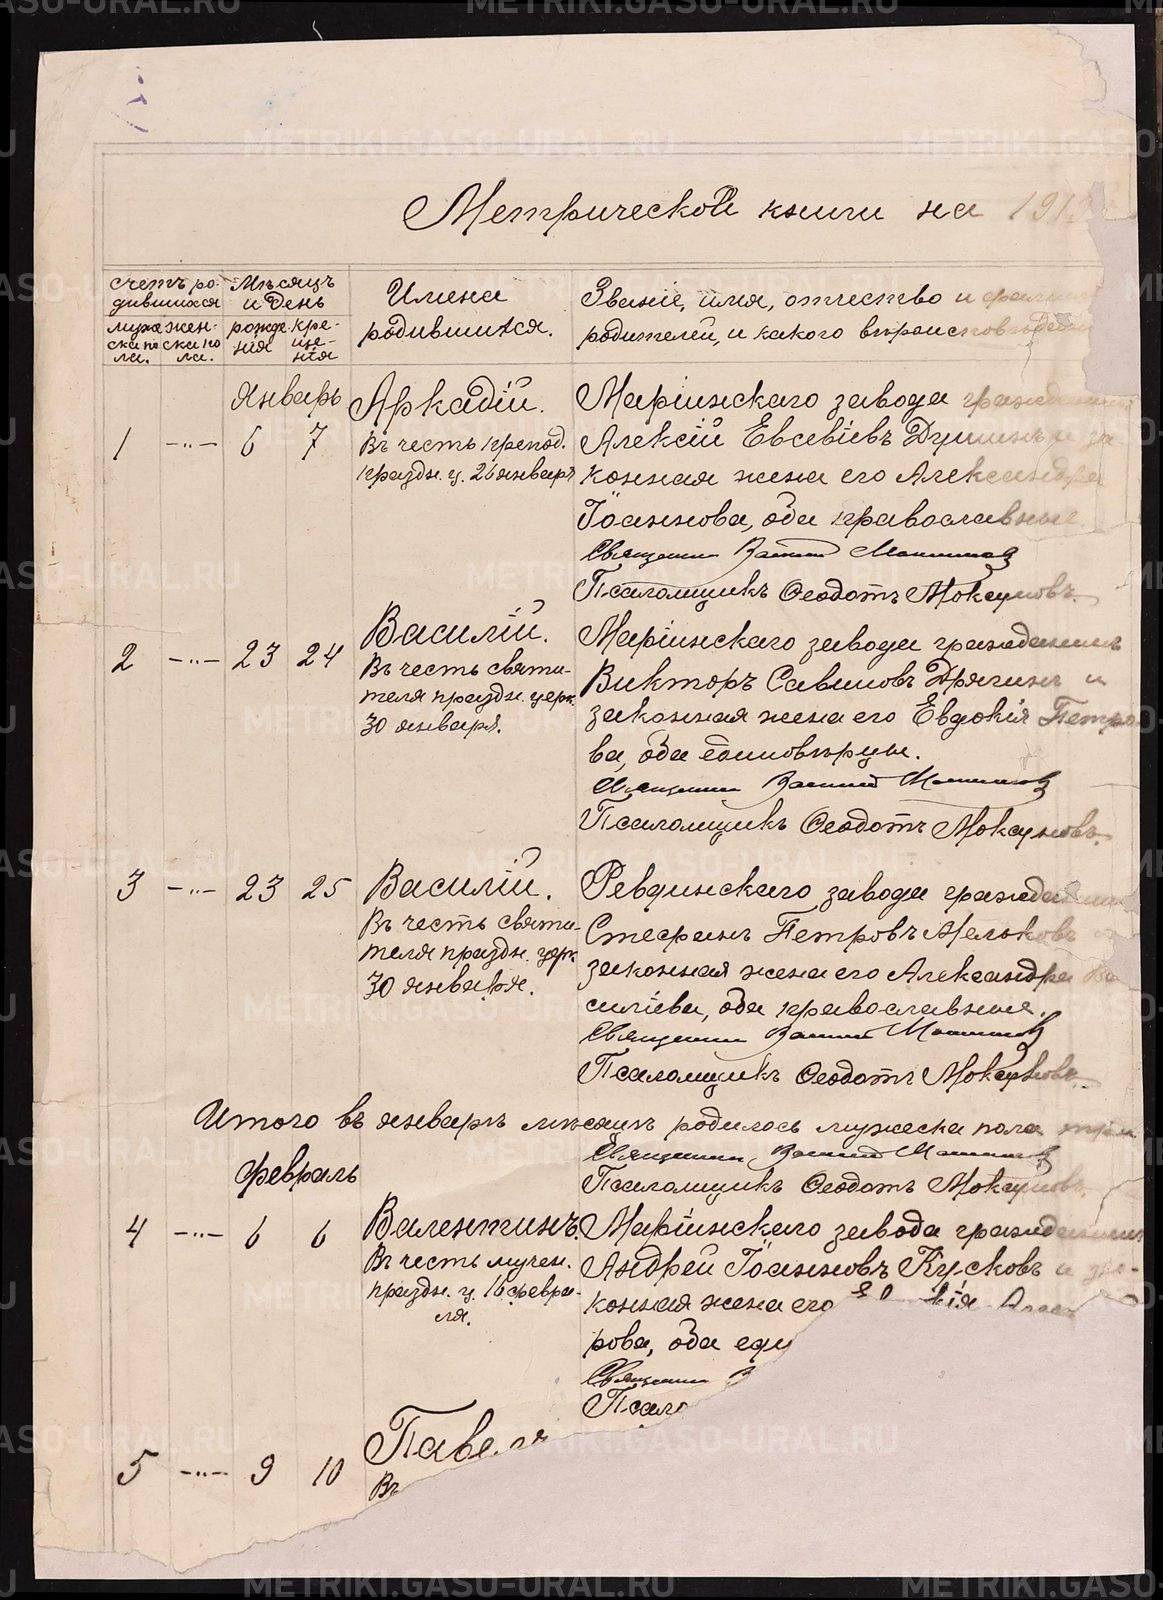 Метрической книги на 191
счетъ ро-
дившихся
Мѣсяцъ
и день
Имена
родившихся.
Званіе, имя, отчество и фамил
родителей, и какого вѣроисповѣдан
муже
ска по
ла.
жен-
ска по
ла.
рожде
нія
кре-
ще-
нія
Январь
1 -"- 6 7
Аркадій.
Въ честь препод.
праздн. ц. 26 январ
Маріинскаго завода гражданинъ
Алексій Евсевіевъ Душинъ и за-
конная жена его Александра
Іоаннова, оба православные.
Священникъ Василій
Псаломщикъ Ѳеодотъ Мокеуновъ.
2 -"- 23 24
Василій.
Въ честь святи-
теля праздн. церк.
30 января.
Маріинскаго завода гражданинъ
Викторъ Саввиновъ Дрягинъ и
законная жена его Евдокія Петро
ва, оба единовѣрцы.
Священникъ Василій
Псаломщикъ Ѳеодотъ Мокеуновъ.
3 -"- 23 25
Василій.
Въ честь святи-
теля праздн. церк
30 января.
Ревдинскаго завода гражданинъ
Стефанъ Петровъ Мельковъ и
законная жена его Александра Ва
силіева, оба православные.
Священникъ Василій
Псаломщикъ Ѳеодотъ Мокеуновъ.
Итого въ январѣ мѣсяцѣ родилось мужеска пола три
Священникъ Василій
Псаломщикъ Ѳеодотъ Мокеуновъ.
февраль
4 -"- 6 6
Валентинъ.
Въ честь мучен.
праздн. ц. 16 февра-
ля.
Маріинскаго завода гражданинъ
Андрей Іоанновъ Кусковъ и за-
конная жена его
рова, оба еди
Священникъ В
Псало
5 -"- 9 10
Павелъ
Въ
METRIKI.GASO-URAL.RU